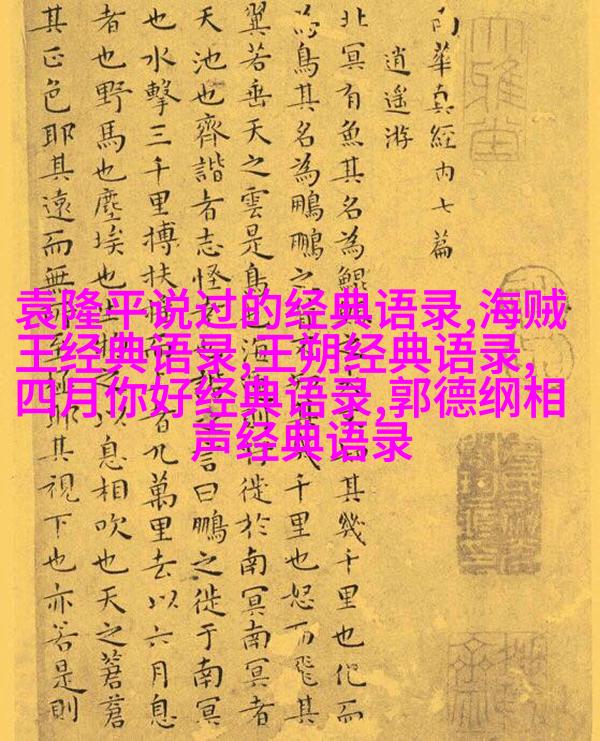 南華真經内七篇
逍遥游
北冥有魚其名為鯤其幾千里也化而
為鳥其名為鵬鵬之千里也怒而飛其
翼若垂天之雲是鳥也海將徙於南冥南冥者
天池也齊諧者志怪言曰鵬之徙于南冥
也水擊三千里搏扶九萬里去以六月息
者也野馬也塵埃也生以息相吹也天之蒼蒼
其正色耶其遠而無所至極耶其視下也亦若是則
袁隆平说过的经典语录,海贼
王经典语录,王朔经典语录,
四月你好经典语录,郭德纲相
声经典语录